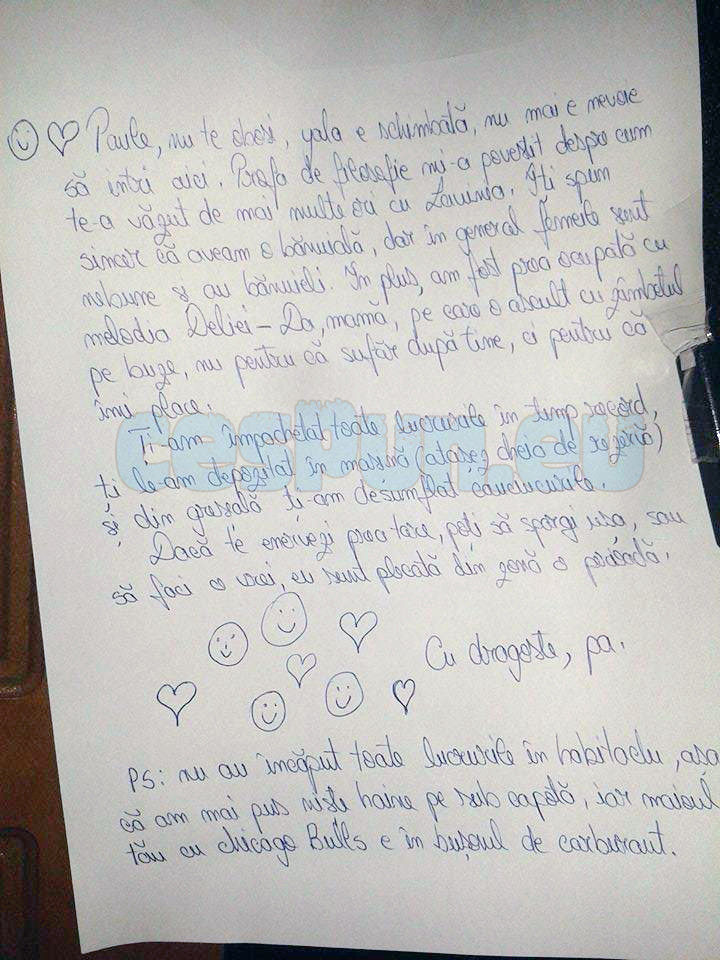 Paule, nu te obosi, yala e schimbată, nu mai e nevoie
să intri aici. Profa de filosofie mi-a povestit despre cum
te-a văzut de mai multe ori cu Lavinia. Îți spun
sincer că aveam o bănuială, dar în general femeile sunt
nebune și au bănuieli. În plus, am fost prea ocupată cu
melodia Deliei - Da, mamă, pe care o ascult cu zâmbetul
pe buze, nu pentru că sufăr după tine, ci pentru că
îmi place.
Ți-am împachetat toate lucrurile în timp record,
ți le-am depozitat în mașină (atașez cheia de rezervă)
și din greșeală ți-am desumflat cauciucurile.
Dacă te enervezi prea tare, poți să spargi ușa, sau
să faci ce vrei, eu sunt plecată din zonă o perioadă.
Cu dragoste, pa.
PS: nu au încăput toate lucrurile în habitaclu, așa
că am mai pus niște haine pe sub capotă, iar maioul
tău cu Chicago Bulls e în bușonul de carburant.
cespun.eu